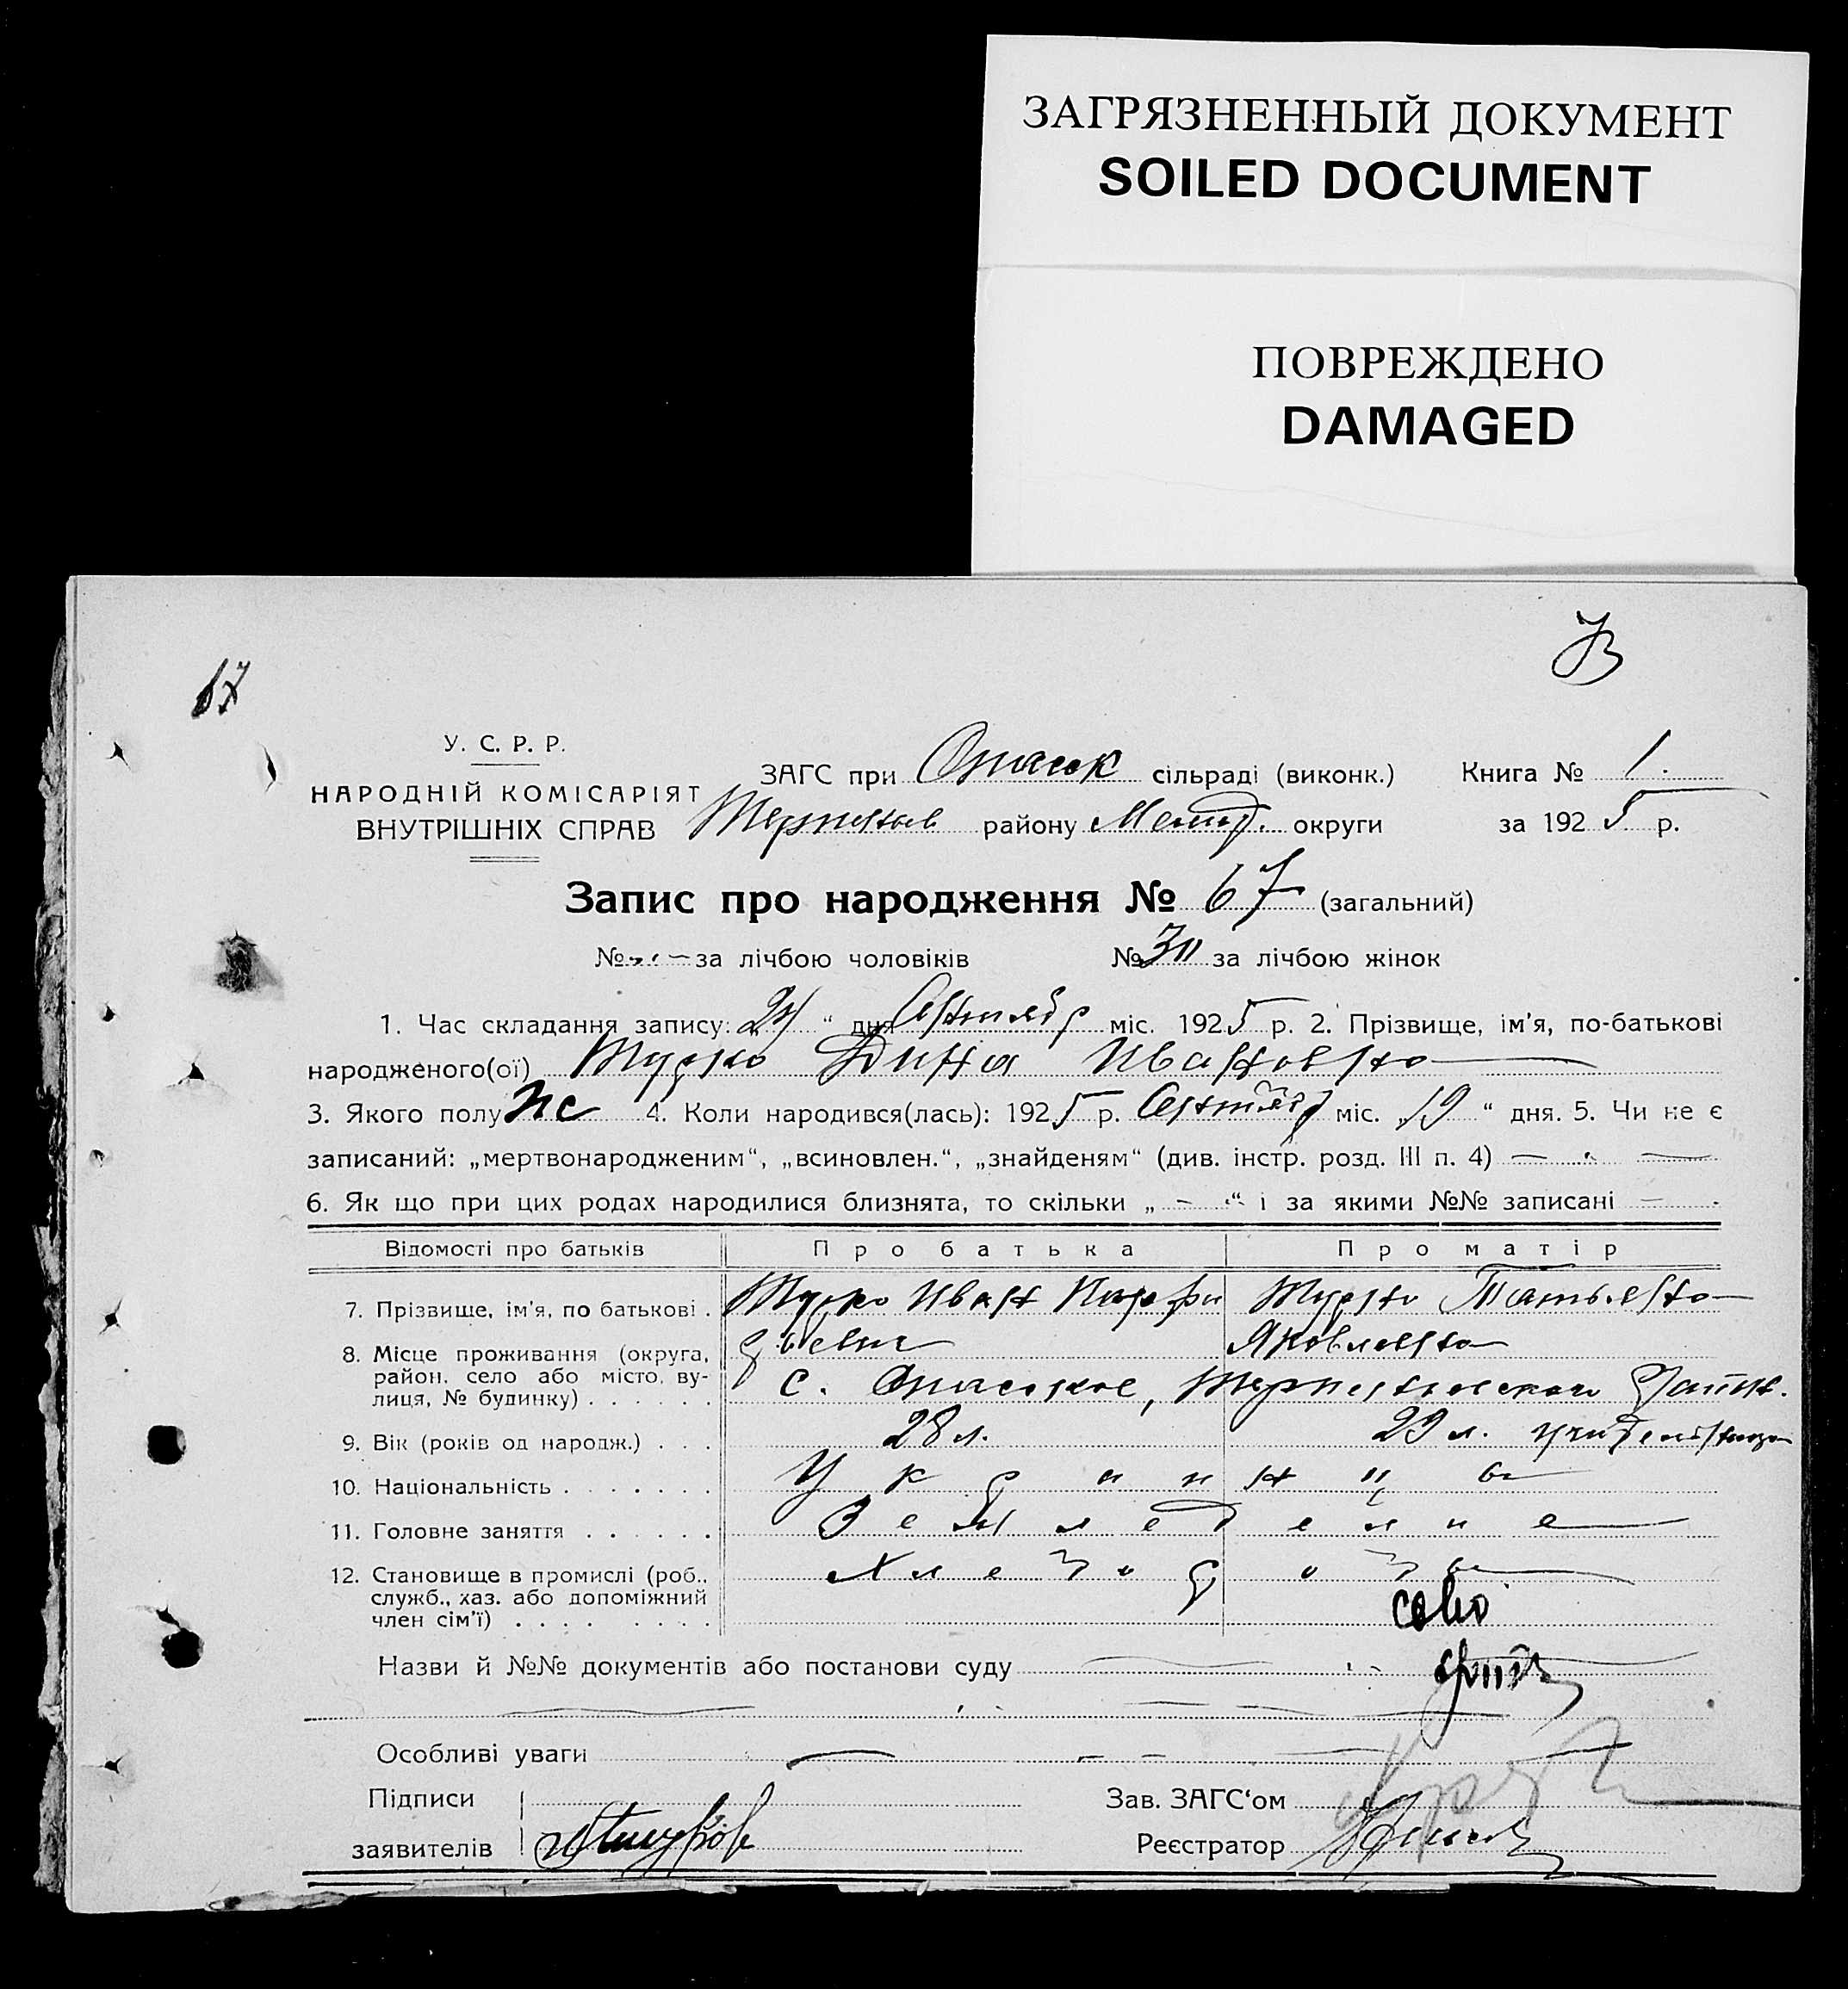 ЗАГРЯЗНЕННЫЙ ДОКУМЕНТ
SOILED DOCUMENT
ПОВРЕЖДЕНО
DAMAGED
67
У. С. Р. Р.
НАРОДНІЙ КОМІСАРІЯТ
ВНУТРІШНІХ СПРАВ
ЗАГС при Спасск сільраді (виконк.) Книга № 1.
району округи за 1925 р.
Запис про народження № 67 (загальний)
№ за лічбою чоловіків № за лічбою жінок
1. Час складання запису: „ “ дня Сентябр міс. 1925 р. 2. Прізвище, ім'я, по-батькові
народженого(ої) Дина Ивановна
3. Якого полу жс 4. Коли народився(лась): 1925 р. Сентябр міс. „19“ дня. 5. Чи не є
записаний: „мертвонародженим“, „всиновлен.“, „знайденям“ (див. інстр. розд. III п. 4) —
6. Як що при цих родах народилися близнята, то скільки „ — “ і за якими №№ записані —
Відомості про батьків Про батька Про матір
7. Прізвище, ім'я, по батькові . Иван Татьяна
Яковлевна
8. Місце проживання (округа,
район, село або місто, ву-
лиця, № будинку) . . . . . . с. Спасское,
9. Вік (років од народж.) . . . 28 л. 29 л.
10. Національність . . . . . . . Украинцы
11. Головне заняття . . . . . . Земледелие
12. Становище в промислі (роб.,
служб., хаз. або допоміжний
член сім'ї) . . . . . . . . Хлеборобы
Назви й №№ документів або постанови суду —
Особливі уваги —
Підписи
заявителів
Зав. ЗАГС'ом
Реєстратор